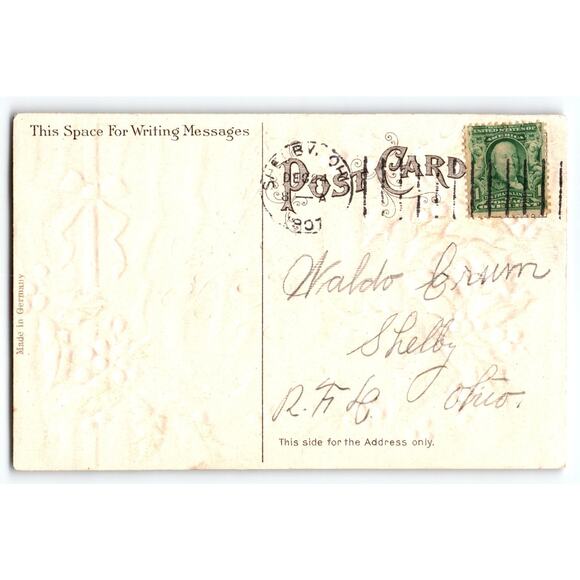 This Space For Writing Messages
POST CARD
SHELBY, OHIO
DEC
8 — A
1907
UNITED STATES OF
AMERICA
FRANKLIN
POSTAGE
Made in Germany
Waldo Crum
Shelby
R. F. D. Ohio.
This side for the Address only.